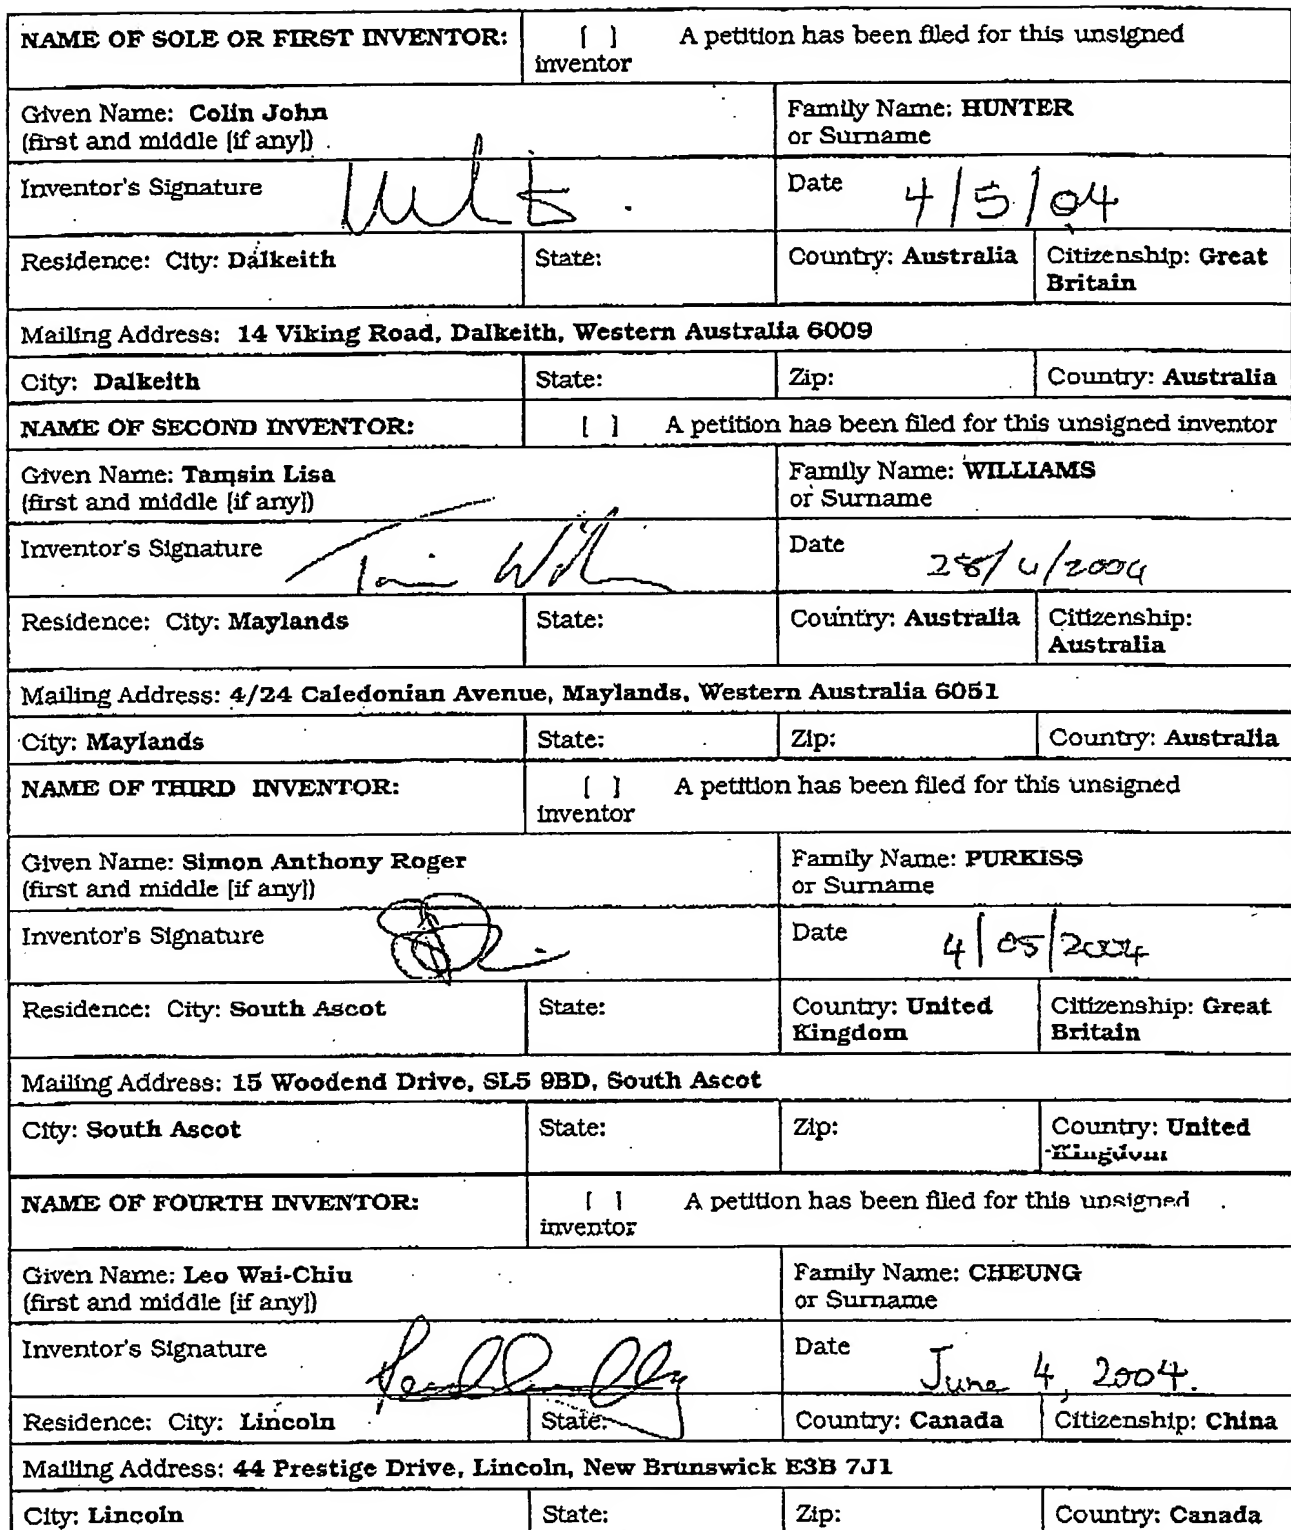 NAME OF SOLE OR FIRST INVENTOR: [ ] A petition has been filed for this unsigned
inventor
Given Name: Colin John Family Name: HUNTER
(first and middle [if any]) or Surname
Inventor's Signature Date 4/5/04
Residence: City: Dalkeith State: Country: Australia Citizenship: Great
Britain
Mailing Address: 14 Viking Road, Dalkeith, Western Australia 6009
City: Dalkeith State: Zip: Country: Australia
NAME OF SECOND INVENTOR: [ ] A petition has been filed for this unsigned inventor
Given Name: Tamsin Lisa Family Name: WILLIAMS
(first and middle [if any]) or Surname
Inventor's Signature Date 28/4/2004
Residence: City: Maylands State: Country: Australia Citizenship:
Australia
Mailing Address: 4/24 Caledonian Avenue, Maylands, Western Australia 6051
City: Maylands State: Zip: Country: Australia
NAME OF THIRD INVENTOR: [ ] A petition has been filed for this unsigned
inventor
Given Name: Simon Anthony Roger Family Name: PURKISS
(first and middle [if any]) or Surname
Inventor's Signature Date 4/05/2004
Residence: City: South Ascot State: Country: United Citizenship: Great
Kingdom Britain
Mailing Address: 15 Woodend Drive, SL5 9BD, South Ascot
City: South Ascot State: Zip: Country: United
Kingdom
NAME OF FOURTH INVENTOR: [ ] A petition has been filed for this unsigned
inventor
Given Name: Leo Wai-Chiu Family Name: CHEUNG
(first and middle [if any]) or Surname
Inventor's Signature Date June 4, 2004.
Residence: City: Lincoln State: Country: Canada Citizenship: China
Mailing Address: 44 Prestige Drive, Lincoln, New Brunswick E3B 7J1
City: Lincoln State: Zip: Country: Canada